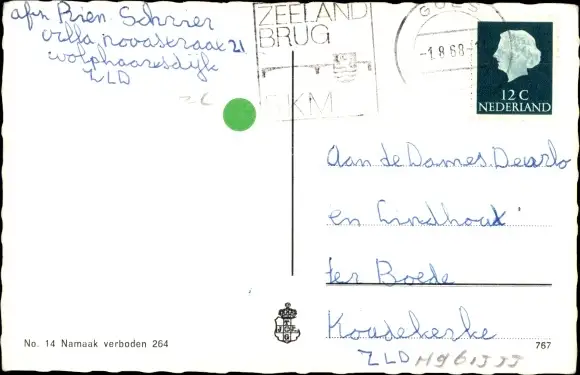 afz Prien Schrier
Villa novastraat 21
wolphaartsdijk
ZLD
ZEELAND
BRUG
5 KM
GOES
-1.8.68-
12 C
NEDERLAND
Aan de Dames Deurlo
en Lindhout
ter Boede
Koudekerke
ZLD
No. 14 Namaak verboden 264
767